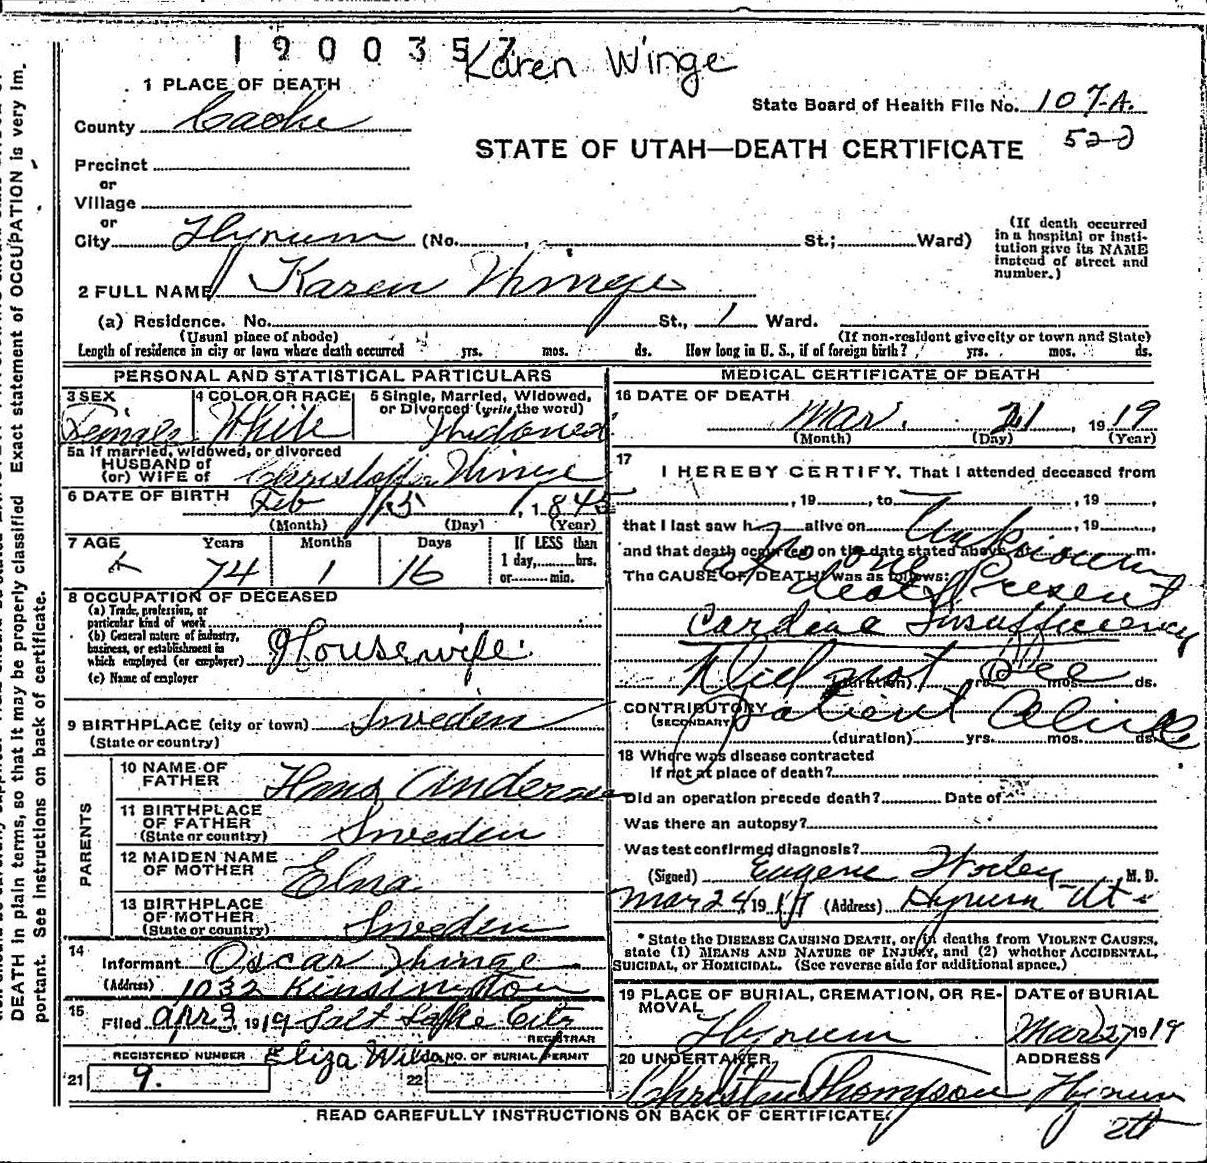 1900357
Karen Winge
1 PLACE OF DEATH
State Board of Health File No. 107-A.
County Cache
520
STATE OF UTAH—DEATH CERTIFICATE
Precinct
or
Village
or
City Hyrum (No. , St.; Ward)
(If death occurred in a hospital or institution give its NAME instead of street and number.)
2 FULL NAME Karen Winge
(a) Residence. No. St., 1 Ward.
(Usual place of abode) (If non-resident give city or town and State)
Length of residence in city or town where death occurred yrs. mos. ds. How long in U. S., if of foreign birth? yrs. mos. ds.
PERSONAL AND STATISTICAL PARTICULARS
3 SEX Female
4 COLOR OR RACE White
5 Single, Married, Widowed, or Divorced (write the word) Widowed
5a If married, widowed, or divorced
HUSBAND of
(or) WIFE of Winge
6 DATE OF BIRTH Feb 15, 1845
(Month) (Day) (Year)
7 AGE Years Months Days If LESS than
74 1 16 1 day, hrs.
or min.
8 OCCUPATION OF DECEASED
(a) Trade, profession, or
particular kind of work
(b) General nature of industry,
business, or establishment in
which employed (or employer) Housewife
(c) Name of employer
9 BIRTHPLACE (city or town) Sweden
(State or country)
PARENTS
10 NAME OF FATHER Hans Anderson
11 BIRTHPLACE OF FATHER
(State or country) Sweden
12 MAIDEN NAME OF MOTHER Elna
13 BIRTHPLACE OF MOTHER
(State or country) Sweden
14 Informant Oscar Winge
(Address) 1032 Kinsington
15 Filed Apr 3, 1919 Salt Lake City
REGISTRAR
REGISTERED NUMBER Eliza Wilson NO. OF BURIAL PERMIT
21 9. 22
MEDICAL CERTIFICATE OF DEATH
16 DATE OF DEATH
Mar. 21, 1919
(Month) (Day) (Year)
17 I HEREBY CERTIFY, That I attended deceased from
, 19 , to , 19 ,
that I last saw h alive on Unknown , 19 ,
and that death occurred on the date stated above m.
No one Present
The CAUSE OF DEATH was as follows:
death
Cardiac Insufficiency
Did not See
(duration) yrs. mos. ds.
CONTRIBUTORY patient Alive
(SECONDARY)
(duration) yrs. mos. ds.
18 Where was disease contracted
If not at place of death?
Did an operation precede death? Date of
Was there an autopsy?
Was test confirmed diagnosis?
(Signed) Eugene M. D.
Mar 24, 1919 (Address) Hyrum Ut
* State the DISEASE CAUSING DEATH, or in deaths from VIOLENT CAUSES,
state (1) MEANS AND NATURE OF INJURY, and (2) whether ACCIDENTAL,
SUICIDAL, or HOMICIDAL. (See reverse side for additional space.)
19 PLACE OF BURIAL, CREMATION, OR REMOVAL Hyrum
DATE of BURIAL Mar 27 1919
20 UNDERTAKER Thompson
ADDRESS Hyrum
READ CAREFULLY INSTRUCTIONS ON BACK OF CERTIFICATE.
Exact statement of OCCUPATION is very im-
DEATH in plain terms, so that it may be properly classified
portant. See instructions on back of certificate.